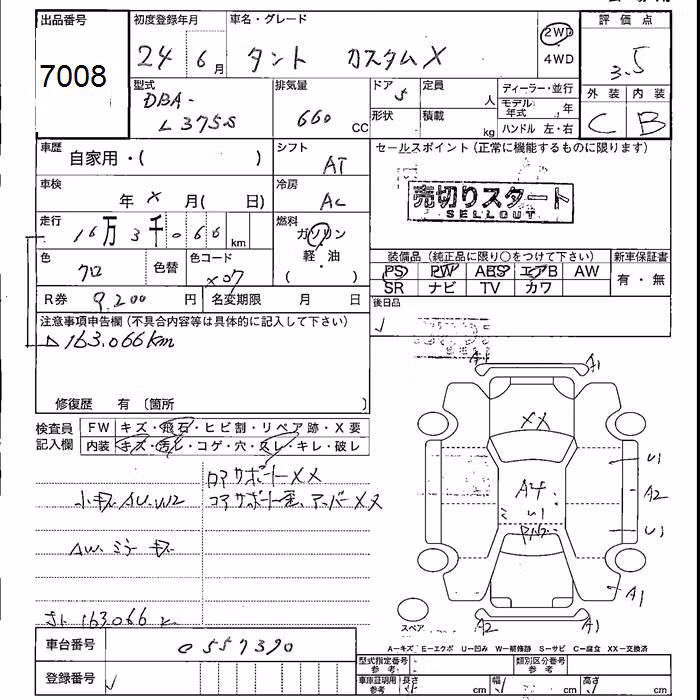 出品番号 初度登録年月 車名・グレード 評価点
7008 24年 6月 タント カスタムX 2WD 3.5
4WD
型式 排気量 ドア 定員 ディーラー・並行 外装 内装
DBA- 5 人 モデル年式 年
L375S 660 CC 形状 積載 kg ハンドル 左・右 C B
車歴 シフト セールスポイント(正常に機能するものに限ります)
自家用・( ) AT
車検 冷房 売切りスタート
年 × 月( 日) AC SELLOUT
走行 燃料
16万3千066 km ガソリン
軽・油
色 色替 色コード ( ) 装備品(純正品に限り○をつけて下さい) 新車保証書
クロ X07 PS PW ABS エアB AW 有・無
SR ナビ TV カワ
R券 9,200 円 名変期限 月 日 後日品
注意事項申告欄(不具合内容等は具体的に記入して下さい)
△163,066km
修復歴 有 〔箇所 〕
検査員 FW キズ・飛石・ヒビ割・リペア跡・X要
記入欄 内装 キズ・汚レ・コゲ・穴・スレ・キレ・破レ
ロアサポートXX
小キズAU.W2 コアサポート歪、アッパーXX
AW.ミラーキズ
163066
A1 A1
XX
U1
A4 A2
U1
U1
A1
スペア A2 A1
A-キズ E-エクボ U-凹み W-補修跡 S-サビ C-腐食 XX-交換済
車台番号 0557390 型式指定番号 参考 類別区分番号 参考
登録番号 車庫証明用 参考 長さ cm 幅 cm 高さ cm